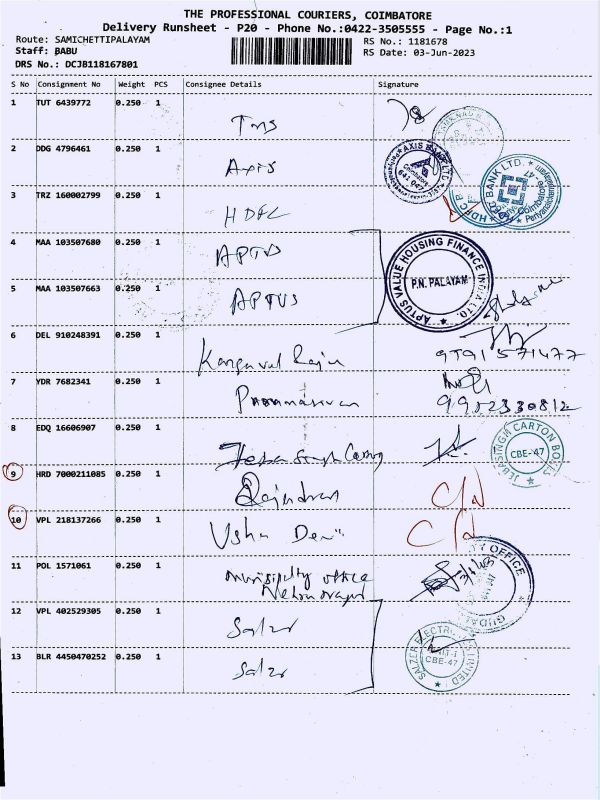 THE PROFESSIONAL COURIERS, COIMBATORE
Delivery Runsheet - P20 - Phone No.:0422-3505555 - Page No.:1
Route: SAMICHETTIPALAYAM RS No.: 1181678
Staff: BABU RS Date: 03-Jun-2023
DRS No.: DCJB118167801
S No Consignment No Weight PCS Consignee Details Signature
1 TUT 6439772 0.250 1
2 DDG 4796461 0.250 1 Axis
AXIS BANK LTD
Coimbatore
3 TRZ 160002799 0.250 1 HDFC
HDFC BANK LTD.
4 MAA 103507680 0.250 1 APTUS
5 MAA 103507663 0.250 1 APTUS
APTUS VALUE HOUSING FINANCE INDIA LTD.
P.N. PALAYAM
6 DEL 910248391 0.250 1 Raju
9791571477
7 YDR 7682341 0.250 1 Paramasivan
9952330812
8 EDQ 16606907 0.250 1
JEBASINGH CARTON BOXES
CBE-47
9 HRD 7000211085 0.250 1 Rajendran C/d
10 VPL 218137266 0.250 1 Usha Devi C/d
11 POL 1571061 0.250 1 office
OFFICE
12 VPL 402529305 0.250 1 Salzer
13 BLR 4450470252 0.250 1 Salzer
SALZER ELECTRONICS LIMITED
UNIT-I
CBE-47